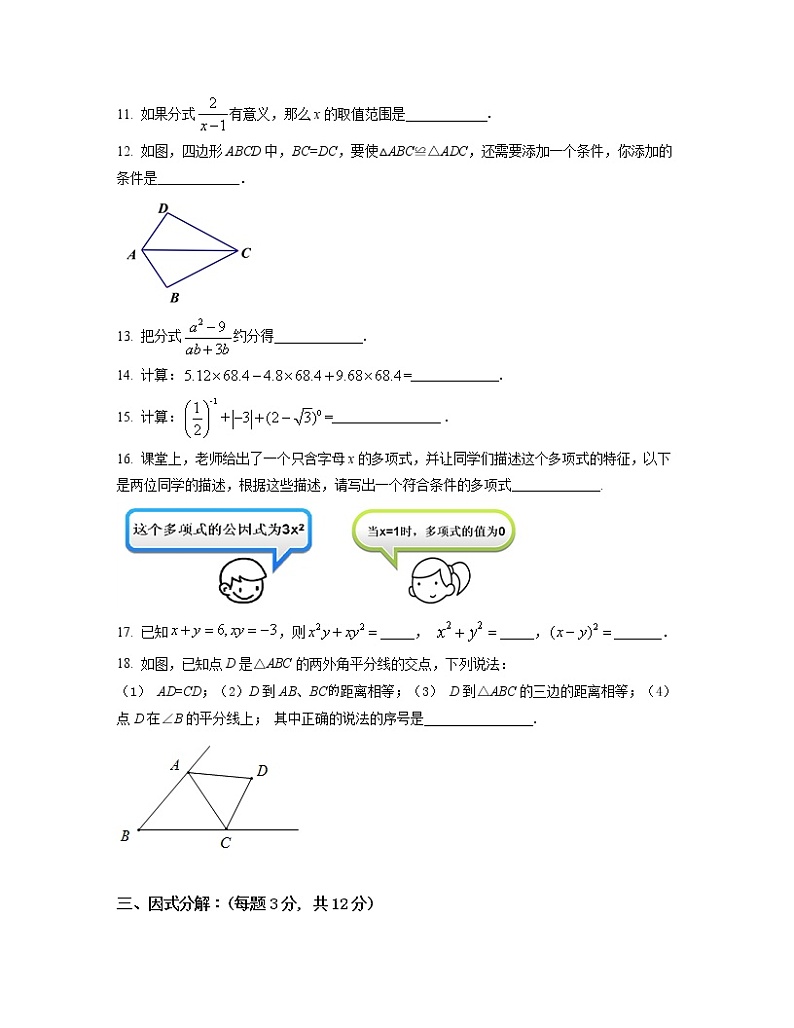 11. 如果分式 2/(x−1) 有意义，那么 x 的取值范围是____________．
12. 如图，四边形 ABCD 中，BC=DC，要使△ABC≌△ADC，还需要添加一个条件，你添加的
条件是____________．
D
A
C
B
13. 把分式 (a²−9)/(ab+3b) 约分得____________．
14. 计算：5.12×68.4−4.8×68.4+9.68×68.4=____________．
15. 计算：(1/2)⁻¹+|−3|+(2−√3)⁰=________________．
16. 课堂上，老师给出了一个只含字母 x 的多项式，并让同学们描述这个多项式的特征，以下
是两位同学的描述，根据这些描述，请写出一个符合条件的多项式____________.
这个多项式的公因式为3x²
当x=1时，多项式的值为0
17. 已知 x+y=6,xy=−3，则 x²y+xy²=_____，x²+y²=_____，(x−y)²=_______．
18. 如图，已知点 D 是△ABC 的两外角平分线的交点，下列说法：
（1） AD=CD；（2）D 到 AB、BC的距离相等；（3） D 到△ABC 的三边的距离相等；（4）
点 D 在∠B 的平分线上； 其中正确的说法的序号是________________．
A
D
B
C
三、因式分解：(每题 3 分, 共 12 分)